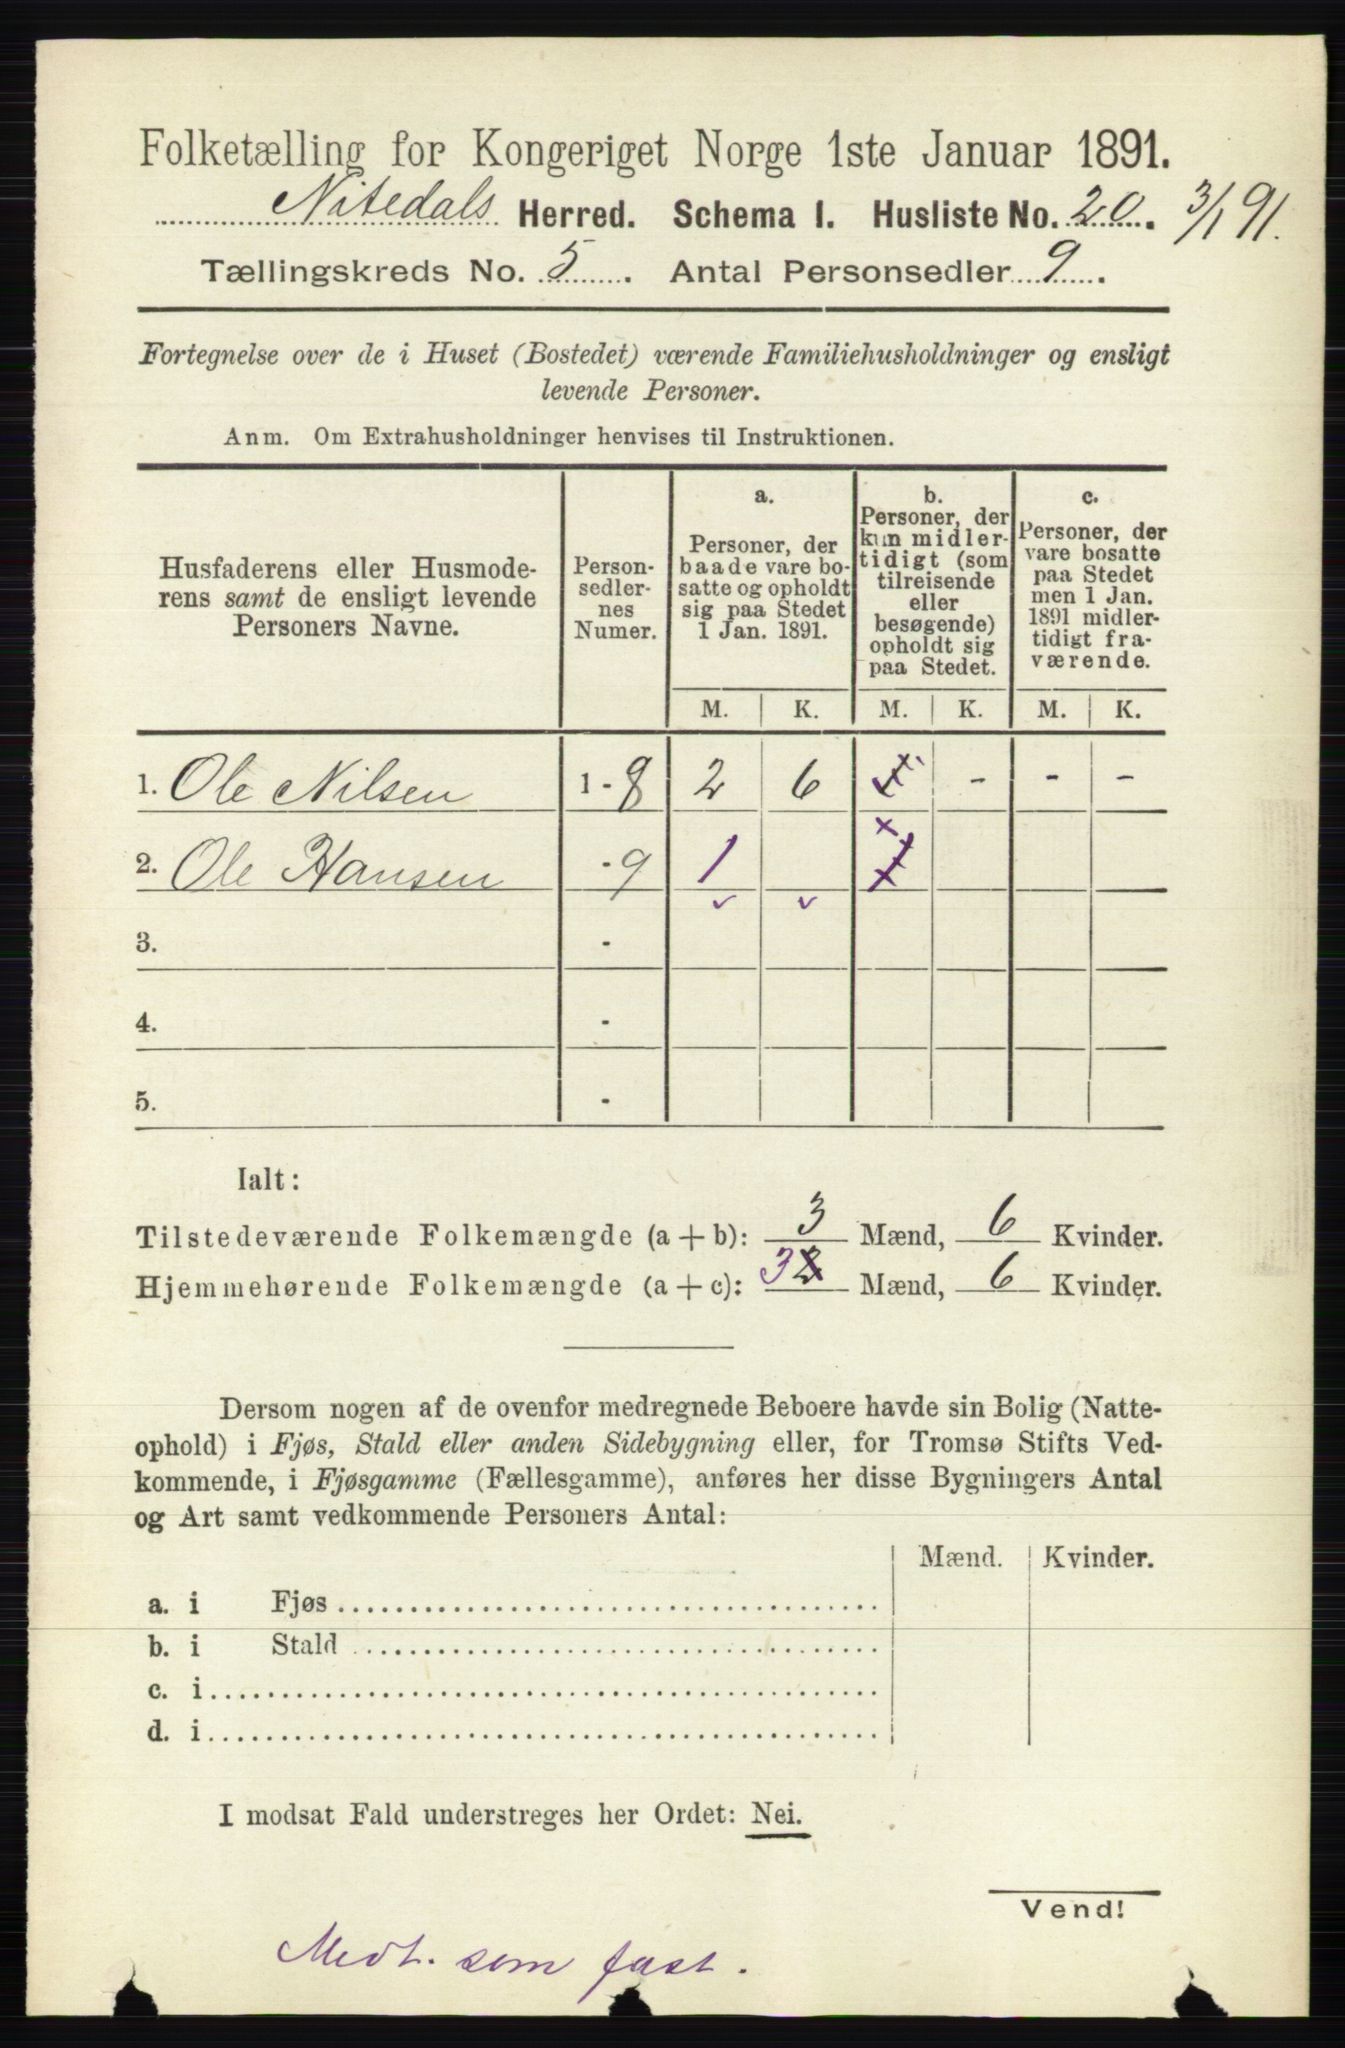 Folketælling for Kongeriget Norge 1ste Januar 1891.
Nitedals Herred. Schema I. Husliste No. 20. 3/1 91.
Tællingskreds No. 5. Antal Personsedler 9.
Fortegnelse over de i Huset (Bostedet) værende Familiehusholdninger og ensligt
levende Personer.
Anm. Om Extrahusholdninger henvises til Instruktionen.
Husfaderens eller Husmode-
rens samt de ensligt levende
Personers Navne.
Person-
sedler-
nes
Numer.
a.
Personer, der
baade vare bo-
satte og opholdt
sig paa Stedet
1 Jan. 1891.
b.
Personer, der
kun midler-
tidigt (som
tilreisende
eller
besøgende)
opholdt sig
paa Stedet.
c.
Personer, der
vare bosatte
paa Stedet
men 1 Jan.
1891 midler-
tidigt fra-
værende.
M. K. M. K. M. K.
1. Ole Nilsen 1 - 8 2 6 - - -
2. Ole Hansen - 9 1
3. -
4. -
5. -
Ialt:
Tilstedeværende Folkemængde (a + b): 3 Mænd, 6 Kvinder.
Hjemmehørende Folkemængde (a + c): 3 2 Mænd, 6 Kvinder.
Dersom nogen af de ovenfor medregnede Beboere havde sin Bolig (Natte-
ophold) i Fjøs, Stald eller anden Sidebygning eller, for Tromsø Stifts Ved-
kommende, i Fjøsgamme (Fællesgamme), anføres her disse Bygningers Antal
og Art samt vedkommende Personers Antal:
Mænd. Kvinder.
a. i Fjøs
b. i Stald
c. i
d. i
I modsat Fald understreges her Ordet: Nei.
Vend!
Medt. som fast.